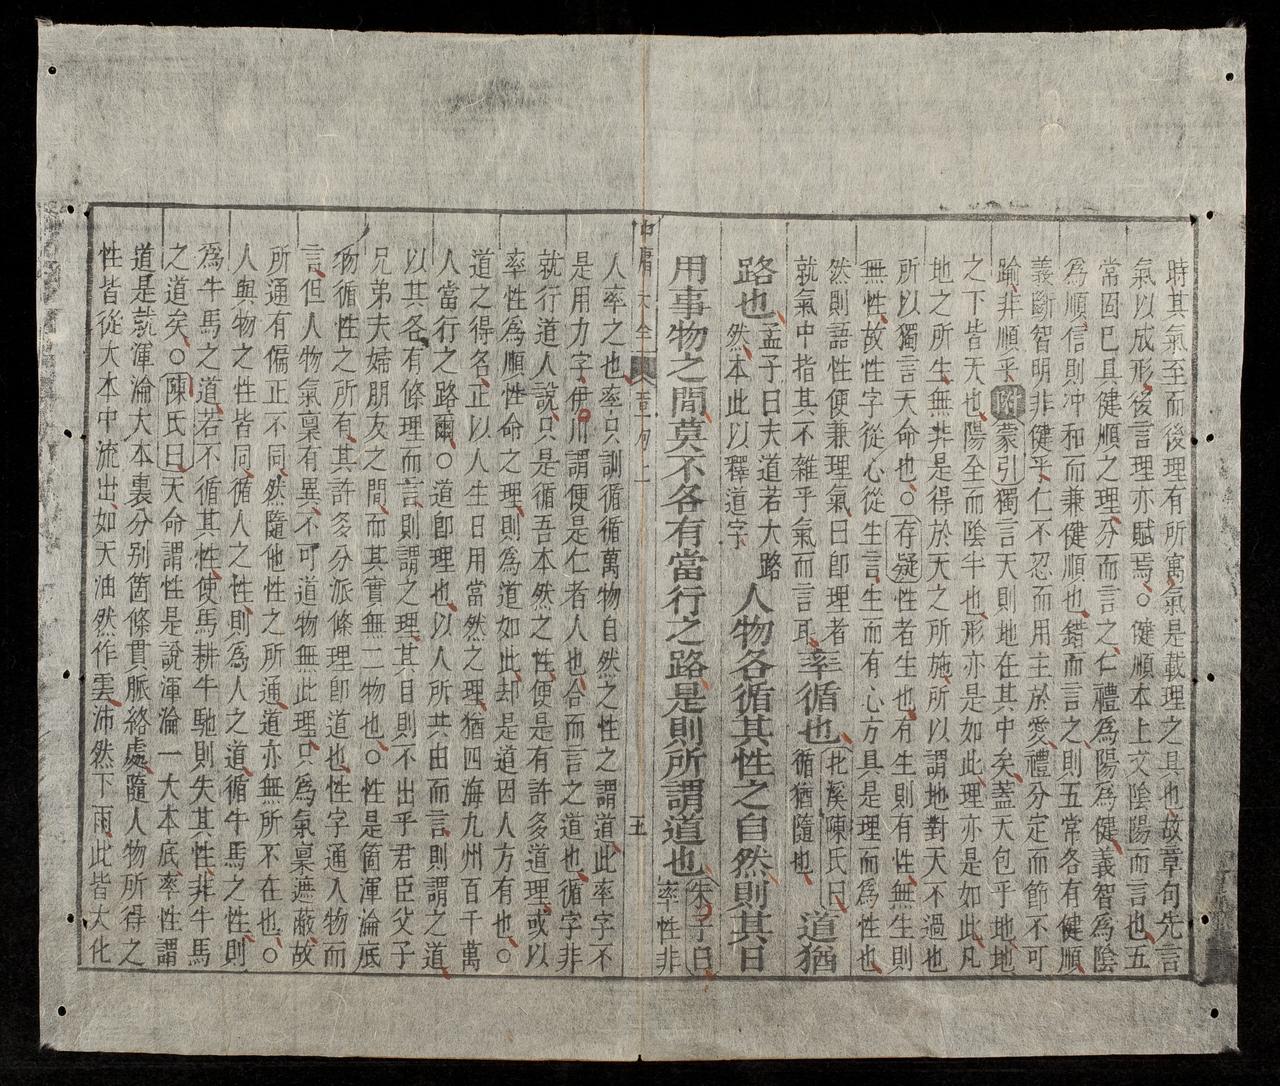 時其氣至而後理有所寓氣是載理之具也故章句先言
氣以成形後言理亦賦焉○健順本上文陰陽而言也五
常固已具健順之理分而言之仁禮爲陽爲健義智爲陰
爲順信則冲和而兼健順也錯而言之則五常各有健順
義斷智明非健乎仁不忍而用主於愛禮分定而節不可
踰非順乎附蒙引獨言天則地在其中矣蓋天包乎地地
之下皆天也陽全而陰半也形亦是如此理亦是如此凡
地之所生無非是得於天之所施所以謂地對天不過也
所以獨言天命也○存疑性者生也有生則有性無生則
無性故性字從心從生言生而有心方具是理而爲性也
然則語性便兼理氣曰卽理者
就氣中指其不雜乎氣而言耳
率循也
北溪陳氏曰
循猶隨也
道猶
路也
孟子曰夫道若大路
然本此以釋道字
人物各循其性之自然則其日
用事物之間莫不各有當行之路是則所謂道也
朱子曰
率性非
中庸大全 章句上 五
人率之也率只訓循循萬物自然之性之謂道此率字不
是用力字伊川謂便是仁者人也合而言之道也循字非
就行道人說只是循吾本然之性便是有許多道理或以
率性爲順性命之理則爲道如此却是道因人方有也○
道之得名正以人生日用當然之理猶四海九州百千萬
人當行之路爾○道卽理也以人所共由而言則謂之道
以其各有條理而言則謂之理其目則不出乎君臣父子
兄弟夫婦朋友之間而其實無二物也○性是箇渾淪底
物循性之所有其許多分派條理卽道也性字通人物而
言但人物氣稟有異不可道物無此理只爲氣稟遮蔽故
所通有偏正不同然隨他性之所通道亦無所不在也○
人與物之性皆同循人之性則爲人之道循牛馬之性則
爲牛馬之道若不循其性使馬耕牛馳則失其性非牛馬
之道矣○陳氏曰天命謂性是說渾淪一大本底率性謂
道是就渾淪大本裏分別箇條貫脈絡處隨人物所得之
性皆從大本中流出如天油然作雲沛然下雨此皆大化